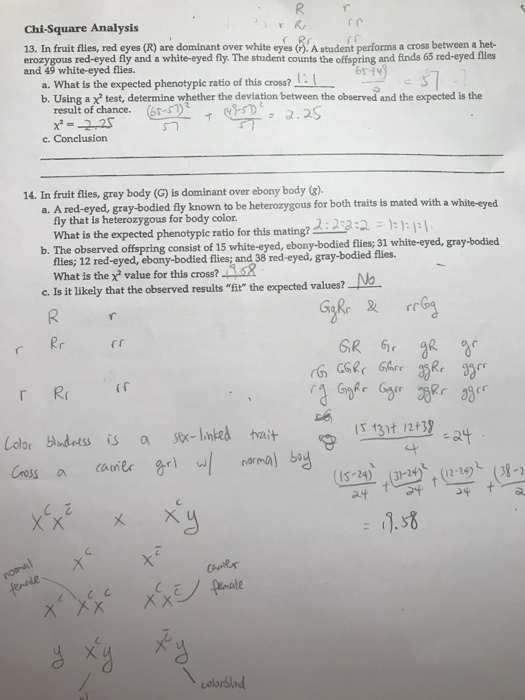 R r
r Rr rr
r Rr rr
Chi-Square Analysis
13. In fruit flies, red eyes (R) are dominant over white eyes (r). A student performs a cross between a het-
erozygous red-eyed fly and a white-eyed fly. The student counts the offspring and finds 65 red-eyed flies
and 49 white-eyed flies.
65+49 / 2 = 57
a. What is the expected phenotypic ratio of this cross? 1:1
b. Using a χ² test, determine whether the deviation between the observed and the expected is the
result of chance. (65-57)² / 57 + (49-57)² / 57 = 2.25
χ² = 2.25
c. Conclusion
14. In fruit flies, gray body (G) is dominant over ebony body (g).
a. A red-eyed, gray-bodied fly known to be heterozygous for both traits is mated with a white-eyed
fly that is heterozygous for body color.
What is the expected phenotypic ratio for this mating? 2:2:2:2 = 1:1:1:1
b. The observed offspring consist of 15 white-eyed, ebony-bodied flies; 31 white-eyed, gray-bodied
flies; 12 red-eyed, ebony-bodied flies; and 38 red-eyed, gray-bodied flies.
What is the χ² value for this cross? 19.58
c. Is it likely that the observed results "fit" the expected values? No
R r
r Rr rr
r Rr rr
GgRr & rrGg
GR Gr gR gr
rG GGRr GGrr ggRr ggrr
rg GgRr Ggrr ggRr ggrr
15+31+12+38 / 4 = 24
(15-24)² / 24 + (31-24)² / 24 + (12-24)² / 24 + (38-2
= 19.58
Color blindness is a sex-linked trait
Cross a carrier girl w/ normal boy
XᶜXc̄ x Xᶜy
Xᶜ Xc̄
normal female
Xᶜ XᶜXᶜ XᶜXc̄
carrier female
y Xᶜy Xc̄y
colorblind